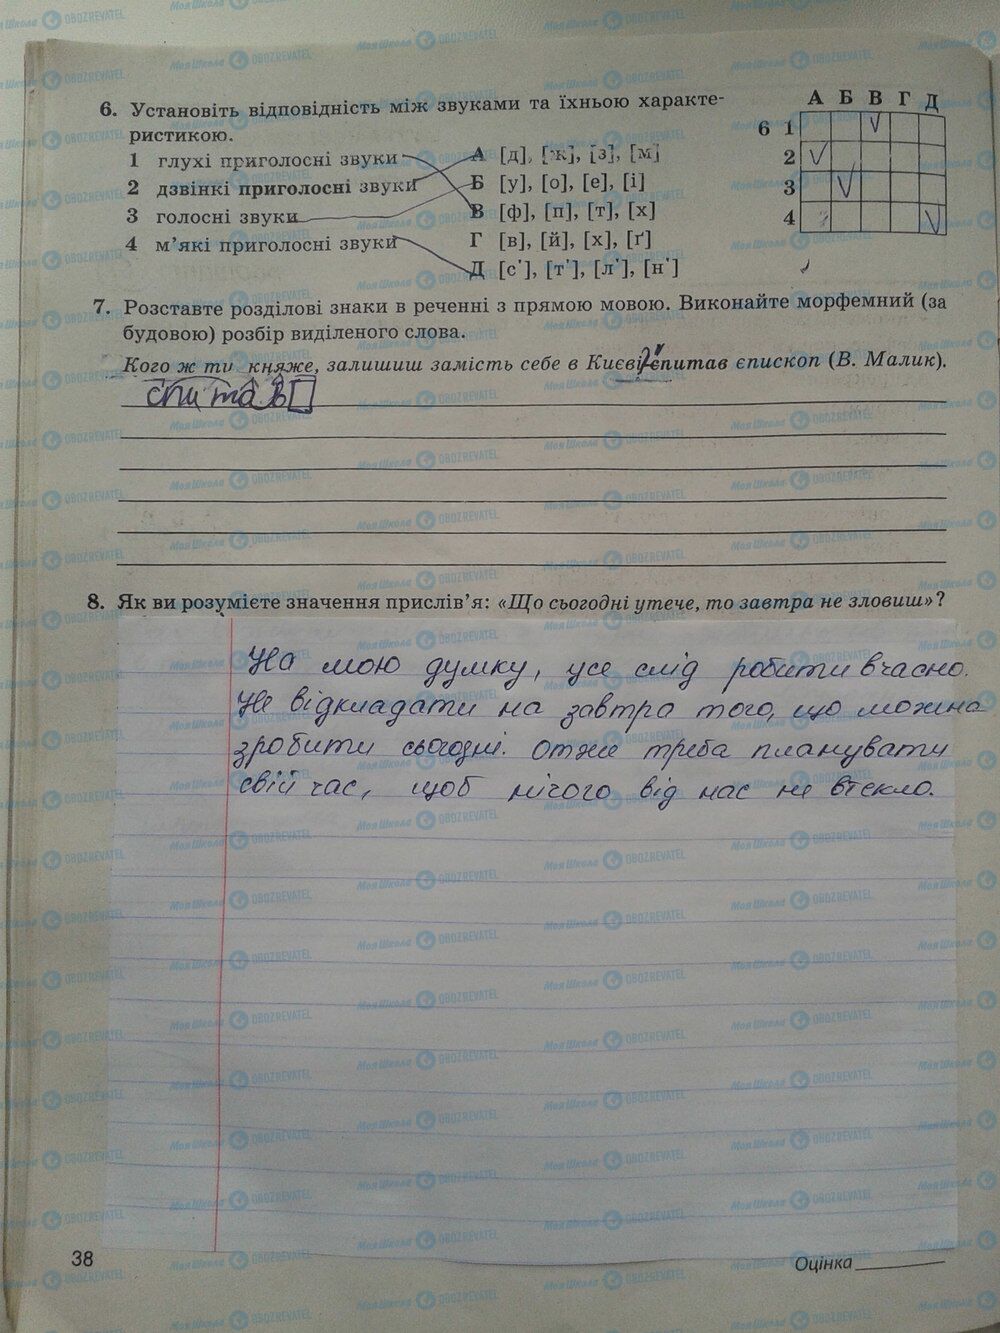 6. Установіть відповідність між звуками та їхньою характе-
ристикою.
1 глухі приголосні звуки
2 дзвінкі приголосні звуки
3 голосні звуки
4 м'які приголосні звуки
А [д], [ж], [з], [м]
Б [у], [о], [е], [і]
В [ф], [п], [т], [х]
Г [в], [й], [х], [ґ]
Д [с'], [т'], [л'], [н']
А Б В Г Д
6 1
2
3
4
7. Розставте розділові знаки в реченні з прямою мовою. Виконайте морфемний (за
будовою) розбір виділеного слова.
Кого ж ти, княже, залишиш замість себе в Києві?" спитав єпископ (В. Малик).
спитав
8. Як ви розумієте значення прислів'я: «Що сьогодні утече, то завтра не зловиш»?
На мою думку, усе слід робити вчасно.
Не відкладати на завтра того, що можна
зробити сьогодні. Отже треба планувати
свій час, щоб нічого від нас не втекло.
38
Оцінка
МояШкола OBOZREVATEL